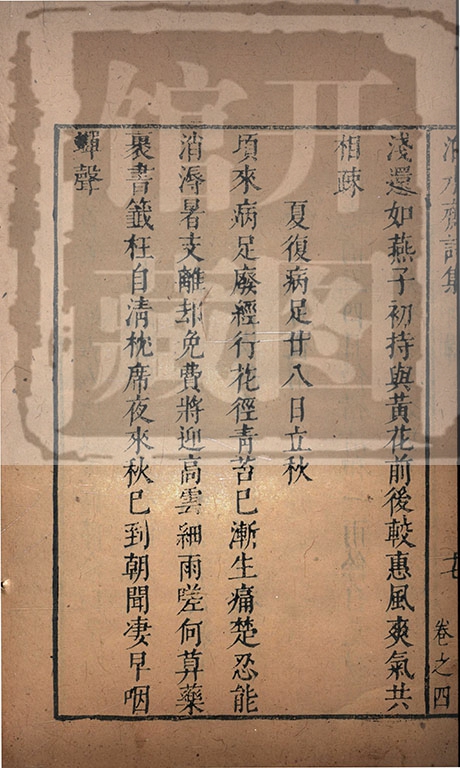 淺還如燕子初持與黃花前後較惠風爽氣共
相疎
夏復病足廿八日立秋
頃來病足廢經行花徑靑苔已漸生痛楚忍能
消溽暑支離却免費將迎高雲細雨嗟何算藥
裹書籤枉自淸枕席夜來秋已到朝聞凄早咽
蟬聲
詩集
卷之四
開圖
館藏